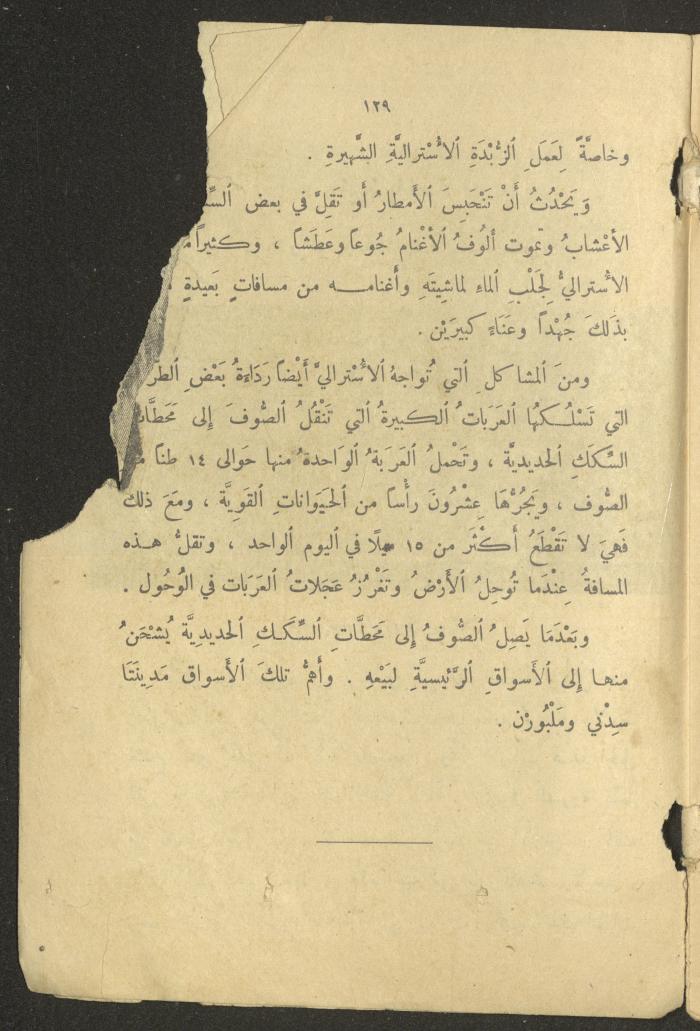 ١٢٩
وخاصَّةً لِعَمَلِ ٱلزُّبْدَةِ ٱلأُسْتراليَّةِ الشَّهيرةِ .
وَيَحْدُثُ أَنْ تَنْحَبِسَ ٱلأَمطارُ أو تَقِلَّ في بعض
الأعْشابُ وتموت أُلوُفُ ٱلأغْنامُ جُوعاً وعَطَشاً ، وكثيراً
الأُسْتراليُّ لِجَلْبِ ٱلماءِ لماشِيتَهِ وأغنامــه من مسافاتٍ بَعيدةٍ
بذَلكَ جُهْداً وعَنَاءً كبيرَيْن .
ومنَ ٱلمشاكلِ ٱلتي تُواجهُ ٱلأُسْتراليَّ أَيْضاً رَدَاءَةُ بَعْضِ
التي تَسْلُـكُهُا ٱلعَرَباتُ ٱلكبيرةُ ٱلتي تَنْقُلُ ٱلصُّوفَ إلى
السِّكَكِ ٱلحديديَّة ، وتَحْملُ ٱلعَرَبةُ ٱلوَاحدةُ منها حَوالى ١٤ طنًا
الصُّوف ، ويَجُرُّهَا عِشْرُونَ رأْساً من ٱلحَيَوَاناتِ ٱلقَوِيَّة ، ومَعَ ذلك
فَهيَ لا تَقْطَعُ أكْثَر من ١٥ ميلًا في ٱليوم ٱلواحد ، وتقلُّ هـذه
المسافةُ عِنْدَما تُوحِلُ ٱلأَرْضُ وتَغْرُزُ عَجَلاتُ ٱلعَرَبات في ٱلوُحُول .
وبَعْدَمَا يَصِلُ ٱلصُّوفُ إلى مَحَطَّاتِ ٱلسِّكَـكِ ٱلحديديَّة يُشْحَنُ
منهـا إلى ٱلأَسواقِ ٱلرَّئيسيَّةِ لبَيْعْهِ . وأَهمُّ تلكَ ٱلأَسواق مَدِينَتَا
سِدْني ومَلْبُورْن .